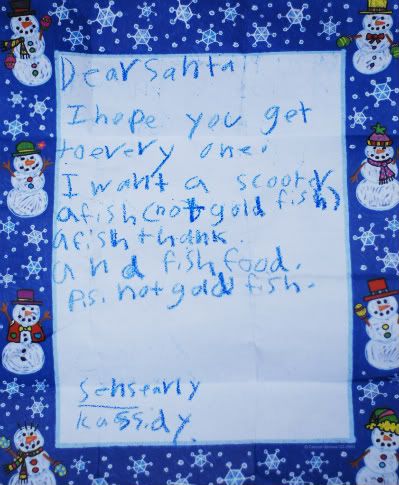 Dear Santa
I hope you get
to every one.
I want a scooter
a fish (not gold fish)
a fish thank.
and fish food.
P.S. not gold fish.
Sensearly
Kassidy